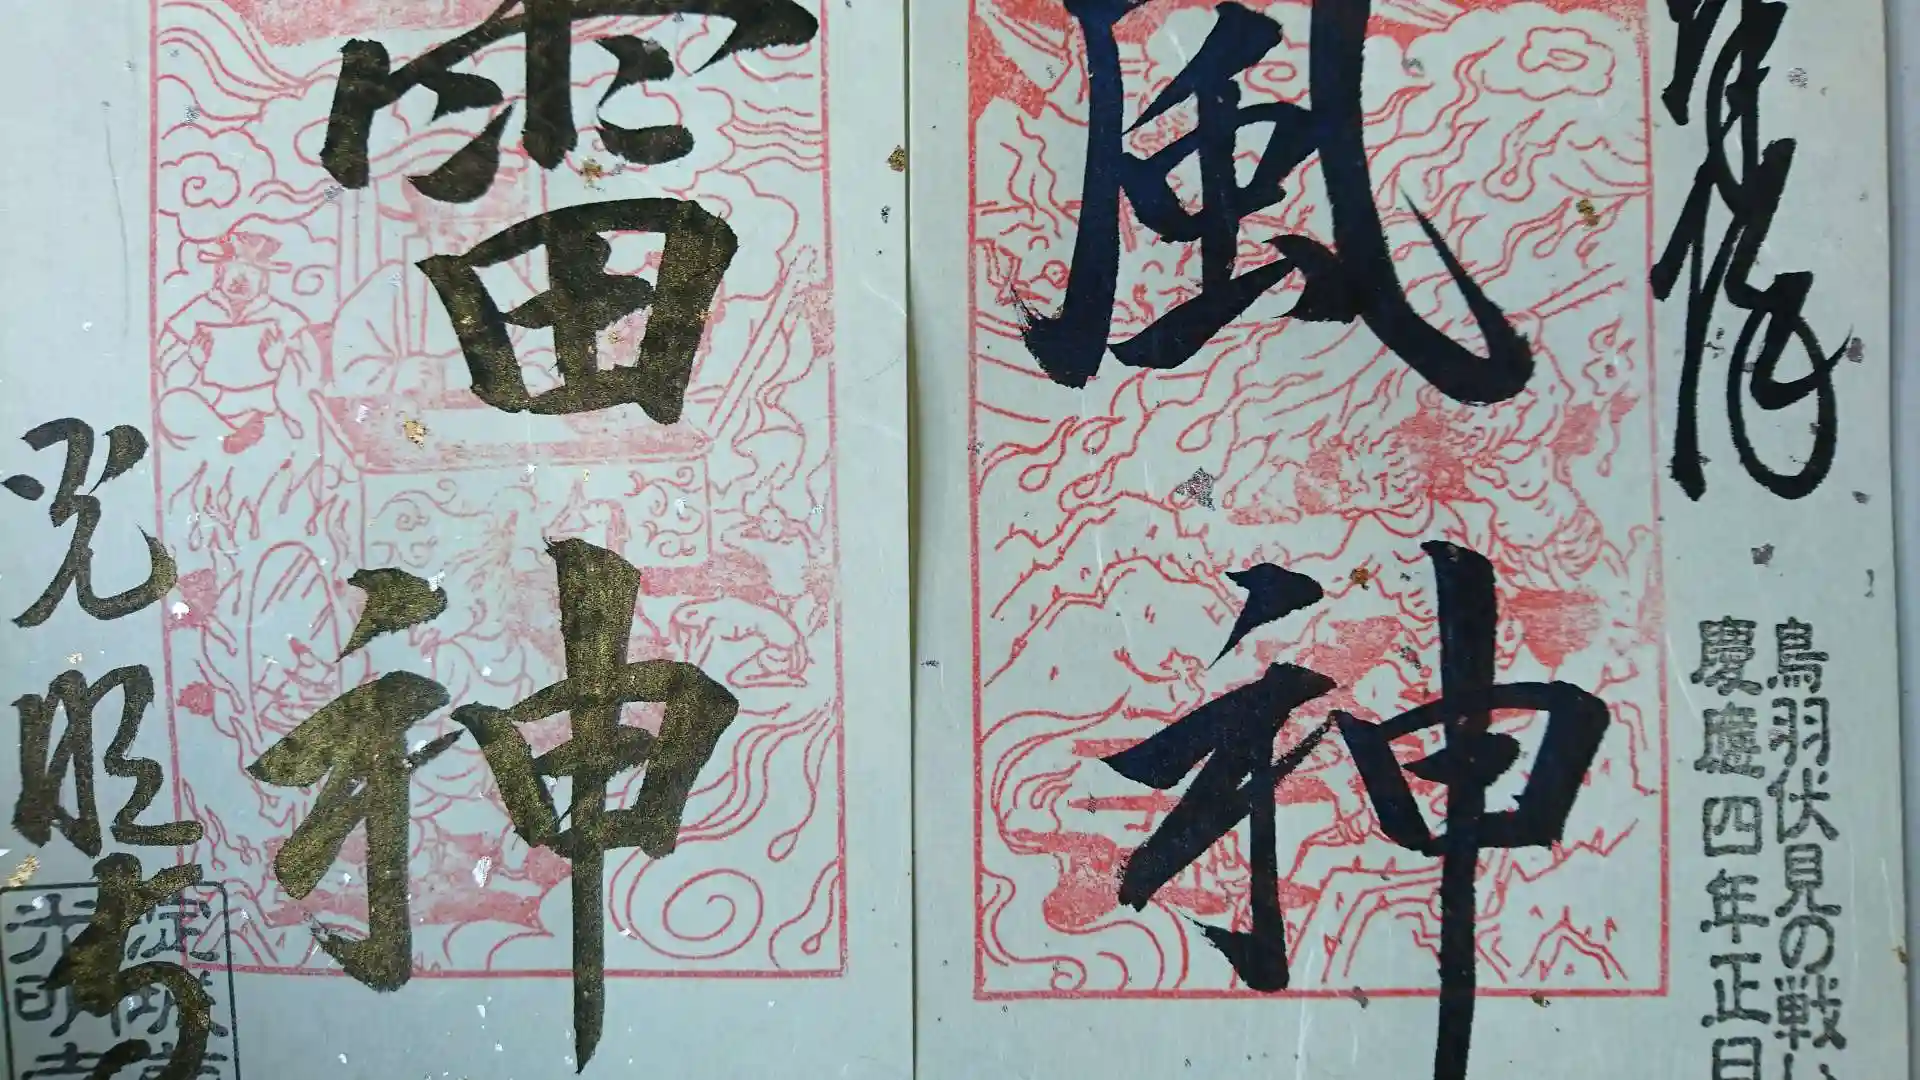 奉拝
鳥羽伏見の戦い
慶應四年正月
風神
雷神
光明寺
淀
光明寺